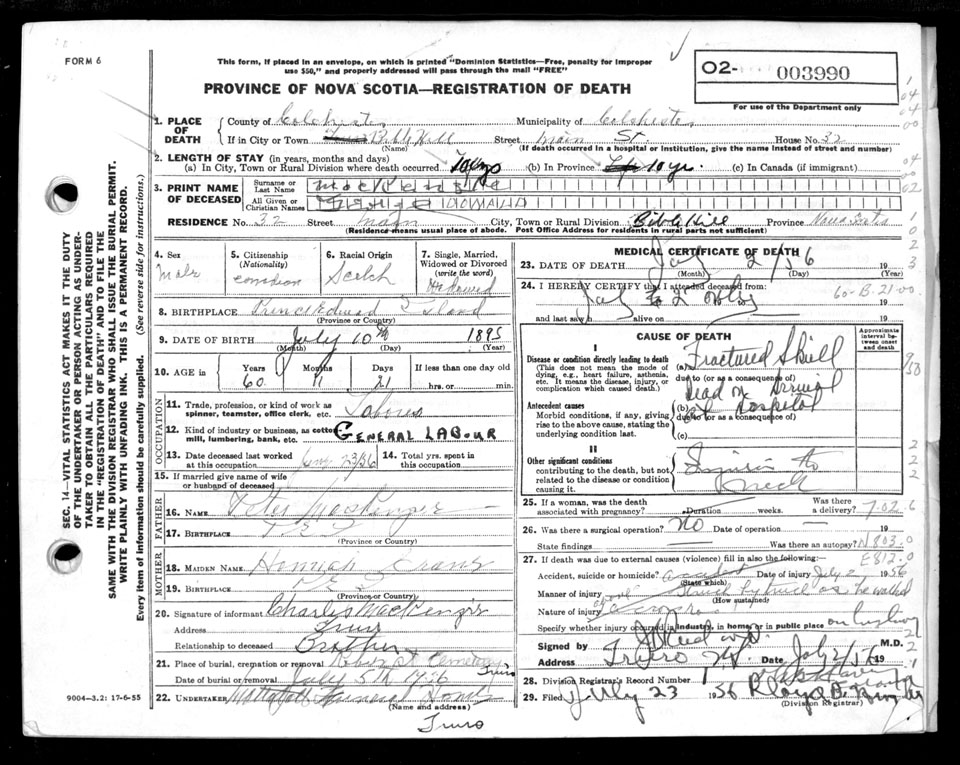 FORM 6
This form, if placed in an envelope, on which is printed "Dominion Statistics—Free, penalty for improper
use $50," and properly addressed will pass through the mail "FREE"
PROVINCE OF NOVA SCOTIA—REGISTRATION OF DEATH
02- 003990
For use of the Department only
1. PLACE OF DEATH
County of Colchester Municipality of Colchester
If in City or Town Bible Hill Street Main St. House No. 32
(Name) (If death occurred in a hospital or institution, give the name instead of street and number)
2. LENGTH OF STAY (in years, months and days)
(a) In City, Town or Rural Division where death occurred 10 yrs (b) In Province 10 yr. (c) In Canada (if immigrant)
3. PRINT NAME OF DECEASED
Surname or Last Name MacKenzie
All Given or Christian Names George
RESIDENCE No. 32 Street main City, Town or Rural Division Bible Hill Province Nova Scotia
(Residence means usual place of abode. Post Office Address for residents in rural parts not sufficient)
4. Sex
Male
5. Citizenship
(Nationality)
Canadian
6. Racial Origin
Scotch
7. Single, Married,
Widowed or Divorced
(write the word)
8. BIRTHPLACE Prince Edward Island
(Province or Country)
9. DATE OF BIRTH July 10th 1895
(Month) (Day) (Year)
10. AGE in Years 60 Months 11 Days 21 If less than one day old
hrs. or min.
OCCUPATION
11. Trade, profession, or kind of work as
spinner, teamster, office clerk, etc. Labourer
12. Kind of industry or business, as cotton
mill, lumbering, bank, etc. GENERAL LABOUR
13. Date deceased last worked
at this occupation 23/56
14. Total yrs. spent in
this occupation
15. If married give name of wife
or husband of deceased
FATHER
16. NAME Peter MacKenzie
17. BIRTHPLACE P E I
(Province or Country)
MOTHER
18. MAIDEN NAME Hannah
19. BIRTHPLACE P E I
(Province or Country)
20. Signature of informant Charles MacKenzie
Address Truro
Relationship to deceased Brother
21. Place of burial, cremation or removal Cemetery Truro
Date of burial or removal July 5th 1956
22. UNDERTAKER Mattatall Funeral Home
(Name and address)
Truro
MEDICAL CERTIFICATE OF DEATH
23. DATE OF DEATH July 2 / 56 19
(Month) (Day) (Year)
24. I HEREBY CERTIFY that I attended deceased from:
60-B-21-00
and last saw h alive on 19
CAUSE OF DEATH
Approximate interval between onset and death
I
Disease or condition directly leading to death
(This does not mean the mode of
dying, e.g., heart failure, asthenia,
etc. It means the disease, injury, or
complication which caused death.)
(a) Fractured Skull
due to (or as a consequence of)
Dead on Arrival
(b) at Hospital
due to (or as a consequence of)
(c)
Antecedent causes
Morbid conditions, if any, giving
rise to the above cause, stating the
underlying condition last.
II
Other significant conditions
contributing to the death, but not
related to the disease or condition
causing it.
to
25. If a woman, was the death
associated with pregnancy? Duration weeks. Was there
a delivery? 7-02
26. Was there surgical operation? No Date of operation 19
State findings Was there an autopsy? N803.0
27. If death was due to external causes (violence) fill in also the following: E812.0
Accident, suicide or homicide? accident Date of injury July 2 1956
(State which)
Manner of injury Struck by truck as he walked
(How sustained)
Nature of injury above
Specify whether injury occurred in industry, in home, or in public place on highway
Signed by M.D.
Address Truro NS Date July 2/56 19
28. Division Registrar's Record Number
29. Filed July 23 1956
(Division Registrar)
SEC. 14—VITAL STATISTICS ACT MAKES IT THE DUTY
OF THE UNDERTAKER OR PERSON ACTING AS UNDER-
TAKER TO OBTAIN ALL THE PARTICULARS REQUIRED
IN THE "REGISTRATION OF DEATH" AND TO FILE THE
SAME WITH THE DIVISION REGISTRAR WHO SHALL ISSUE THE BURIAL PERMIT.
WRITE PLAINLY WITH UNFADING INK. THIS IS A PERMANENT RECORD.
Every item of information should be carefully supplied. (See reverse side for instructions.)
9004—3.2: 17-6-55